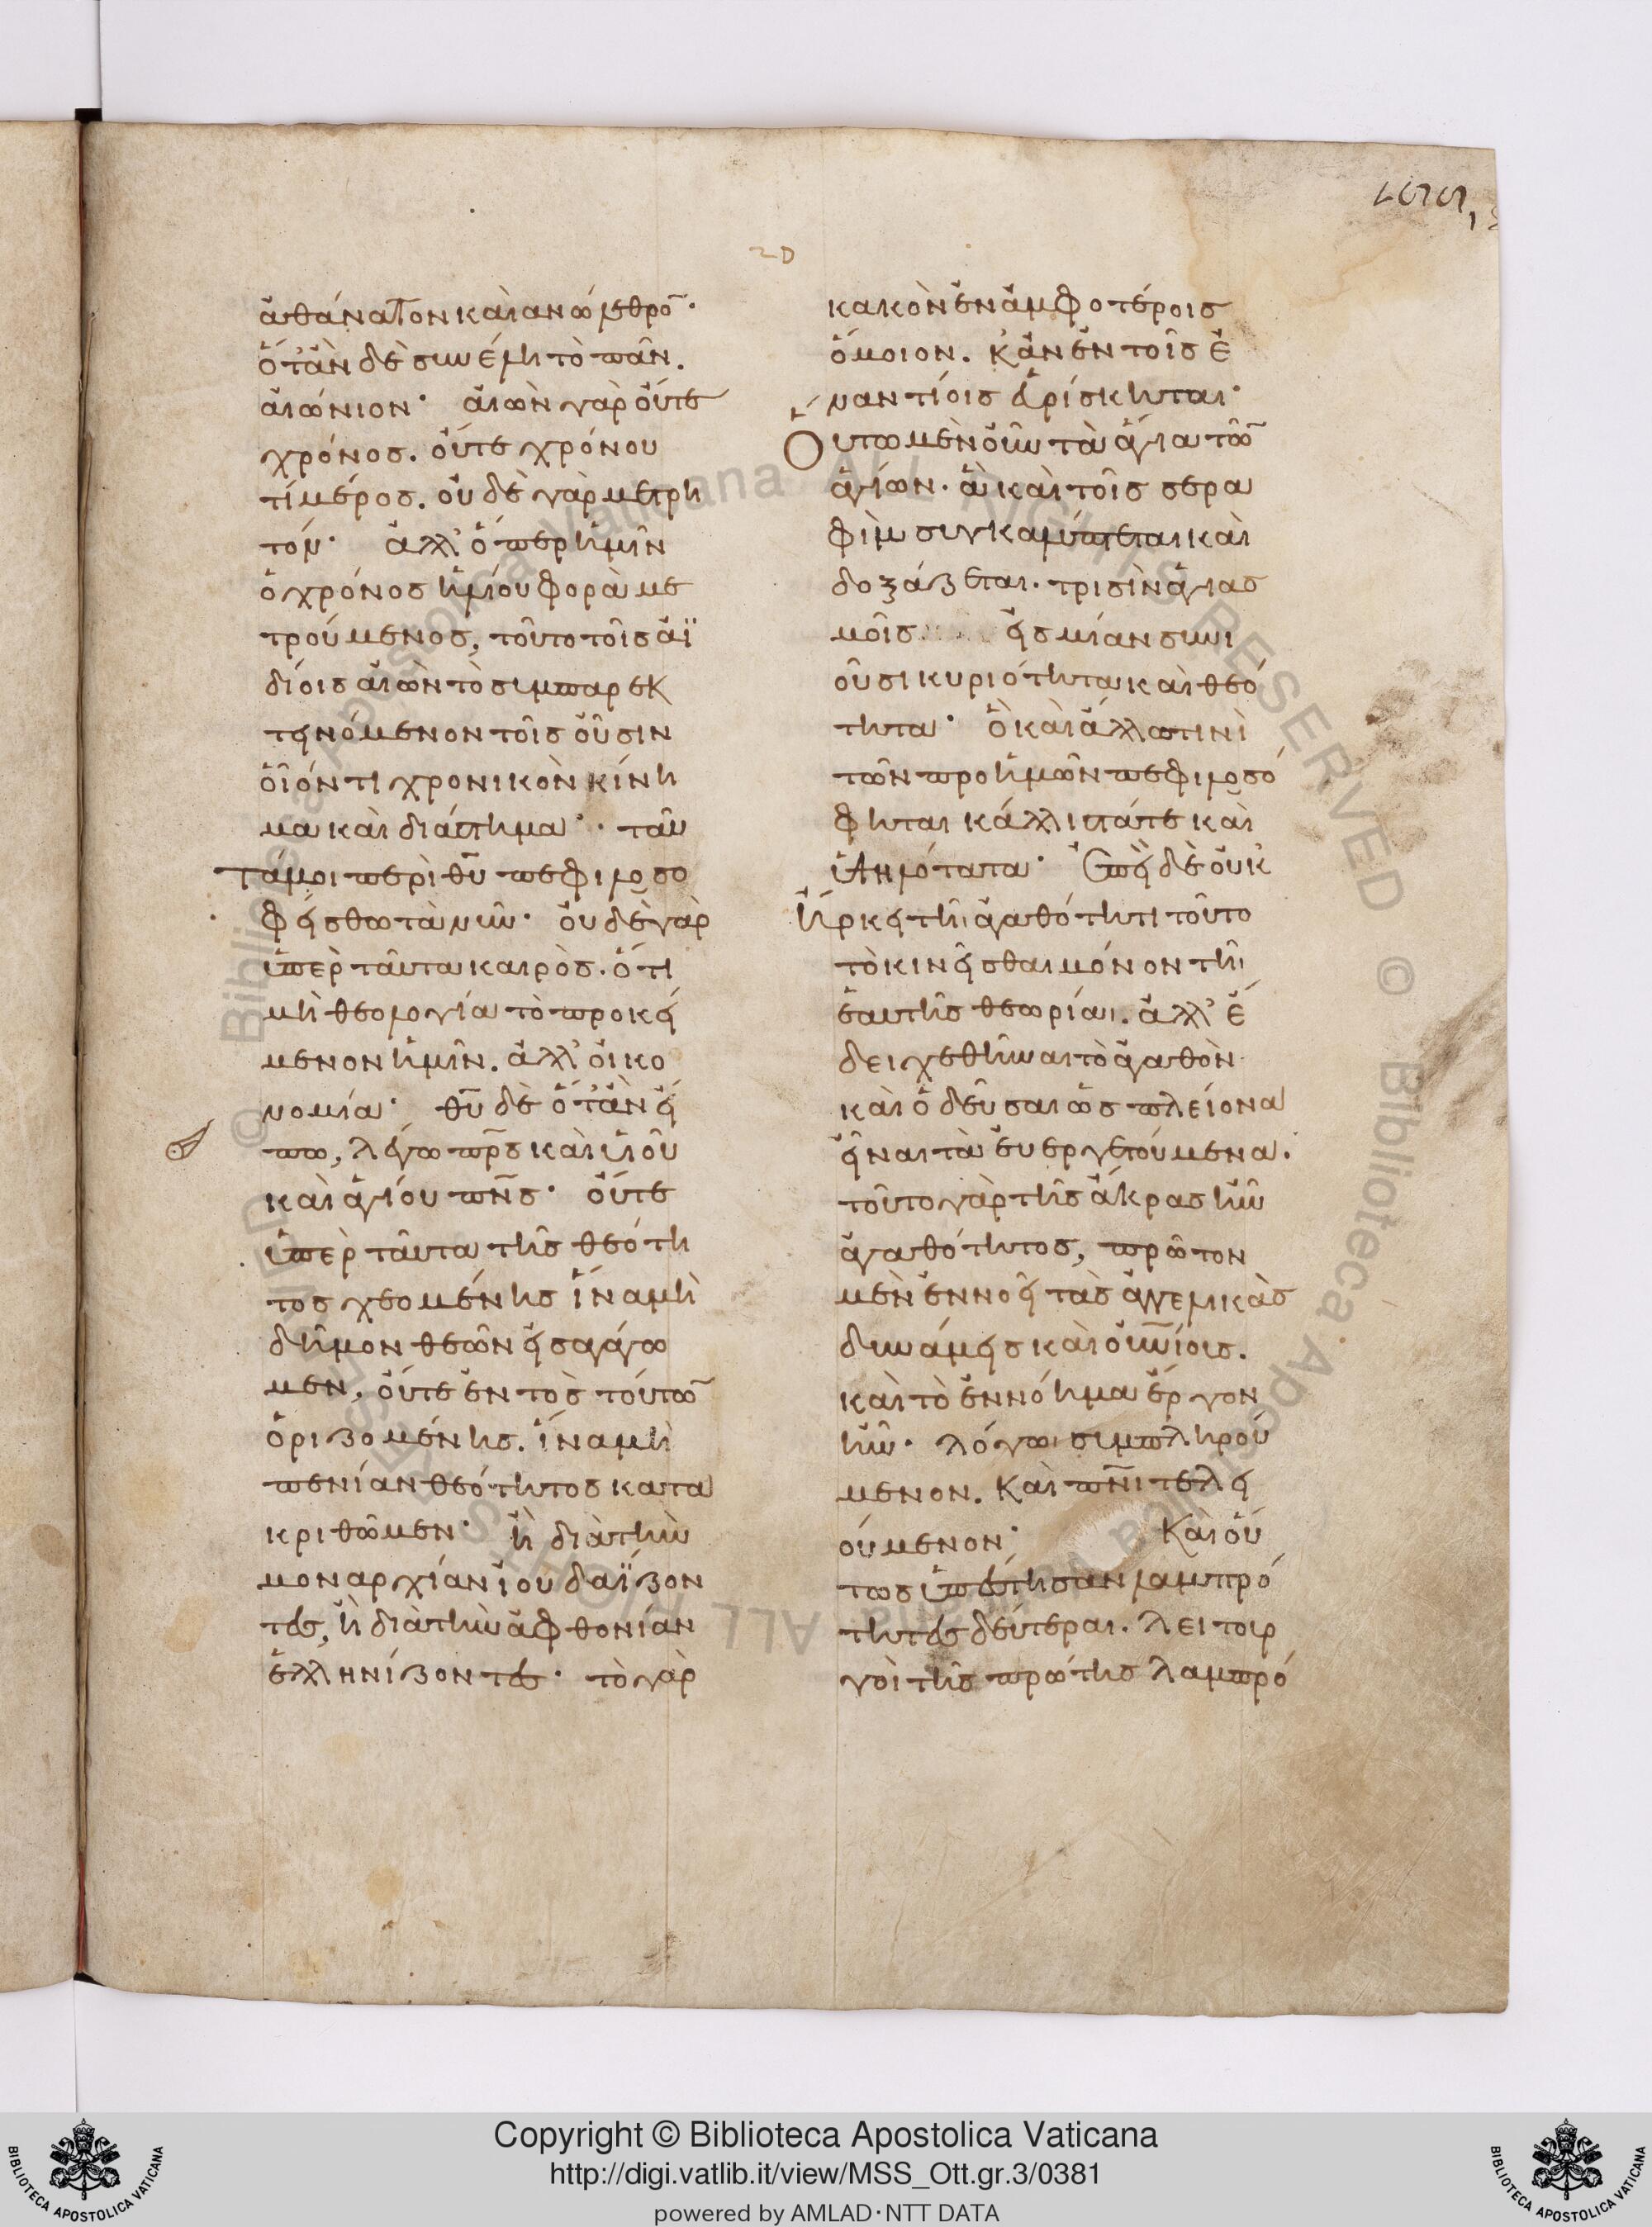 ἀθάνατον καὶ ἀνώλεθρο̅·
ὅτἂν δὲ συνέλη τὸ πᾶν.
αἰώνιον· αἰὼν γὰρ οὔτε
χρόνος. οὔτε χρόνου
τί μέρος. οὐδὲ γὰρ μετρη
τόν· ἀλλ' ὅπερ ἡμῖν
ὁ χρόνος ἡλίου φορᾶ με
τρούμενος, τοῦτο τοῖς ἀϊ
δίοις αἰὼν τὸ συμπαρεκ
τεινόμενον τοῖς οὖσιν
οἷόν τι χρονικὸν κίνη
μα καὶ διάστημα· ταῦ
τά μοι περὶ θυ̅ πεφιλοσο
φείσθω τὰ νῦν· οὐδὲ γὰρ
ὑπὲρ ταῦτα καιρὸς. ὅτι
μὴ θεολογία τὸ προκεί
μενον ἡμῖν. ἀλλ' οἰκο
νομία· θυ̅ δὲ ὅτἂν εἴ
πω, λέγω πρ̅ς καὶ υἱοῦ
καὶ ἁγίου πν̅ς· οὔτε
ὑπὲρ ταῦτα τῆς θεότη
τος χεομένης ἵνα μὴ
δῆμον θεῶν εἰσαγάγω
μεν, οὔτε ἐντὸς τούτω̅
ὁριζομένης. ἵνα μὴ
πενίαν θεότητος κατα
κριθῶμεν· ἢ διὰ τὴν
μοναρχίαν ἰουδαΐζον
τες, ἢ διὰ τὴν ἀφθονίαν
ἑλληνίζοντες· τὸ γὰρ
κακὸν ἐν ἀμφοτέροις
ὅμοιον. κἂν ἐν τοῖς ἐ
ναντίοις εὑρίσκηται·
Οὕτω μὲν οὖν τὰ ἅγια τῶ̅
ἁγίων. ἃ καὶ τοῖς σερα
φὶμ συγκαλύπτεται καὶ
δοξάζεται. τρισὶν ἁγιας
μοῖς εἰς μίαν συνι
οῦσι κυριότητα καὶ θεό
τητα· ὃ καὶ ἄλλω τινὶ
τῶν πρὸ ἡμῶν πεφιλοσό
φηται κάλλιστά τε καὶ
ὑψηλότατα· Ἐπεὶ δὲ οὐκ
ἤρκει τῆι ἀγαθότητι τοῦτο
τὸ κινεῖσθαι μόνον τῆι
ἑαυτῆς θεωρίαι. ἀλλ' ἔ
δει χεθῆναι τὸ ἀγαθὸν
καὶ ὁδεῦσαι ὡς πλείονα
εἶναι τὰ εὐεργετούμενα.
τοῦτο γὰρ τῆς ἄκρας ἦν
ἀγαθότητος, πρῶτον
μὲν ἐννοεῖ τὰς ἀγγελικὰς
δυνάμεις καὶ οὐν̅ίους.
καὶ τὸ ἐννόημα ἔργον
ἦν· λόγωι συμπληρού
μενον. Καὶ πν̅ι τελει
ούμενον· Καὶ οὕ
τως ὑπέστησαν λαμπρό
τητες δεύτεραι. λειτουρ
γοὶ τῆς πρώτης λαμπρό
Copyright © Biblioteca Apostolica Vaticana
http://digi.vatlib.it/view/MSS_Ott.gr.3/0381
powered by AMLAD·NTT DATA
BIBLIOTECA APOSTOLICA VATICANA
BIBLIOTECA APOSTOLICA VATICANA